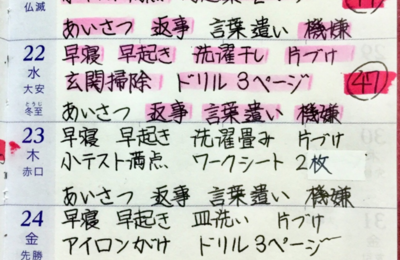 仏滅
あいさつ 返事 言葉遣い 機嫌
22 早寝 早起き 洗濯干し 片づけ
水
大安 玄関掃除 ドリル3ページ 47
とうじ
冬至 あいさつ 返事 言葉遣い 機嫌
23 早寝 早起き 洗濯畳み 片づけ
木
赤口 小テスト満点 ワークシート 2枚
あいさつ 返事 言葉遣い 機嫌
24 早寝 早起き 皿洗い 片づけ
金
先勝 アイロンがけ ドリル3ページ